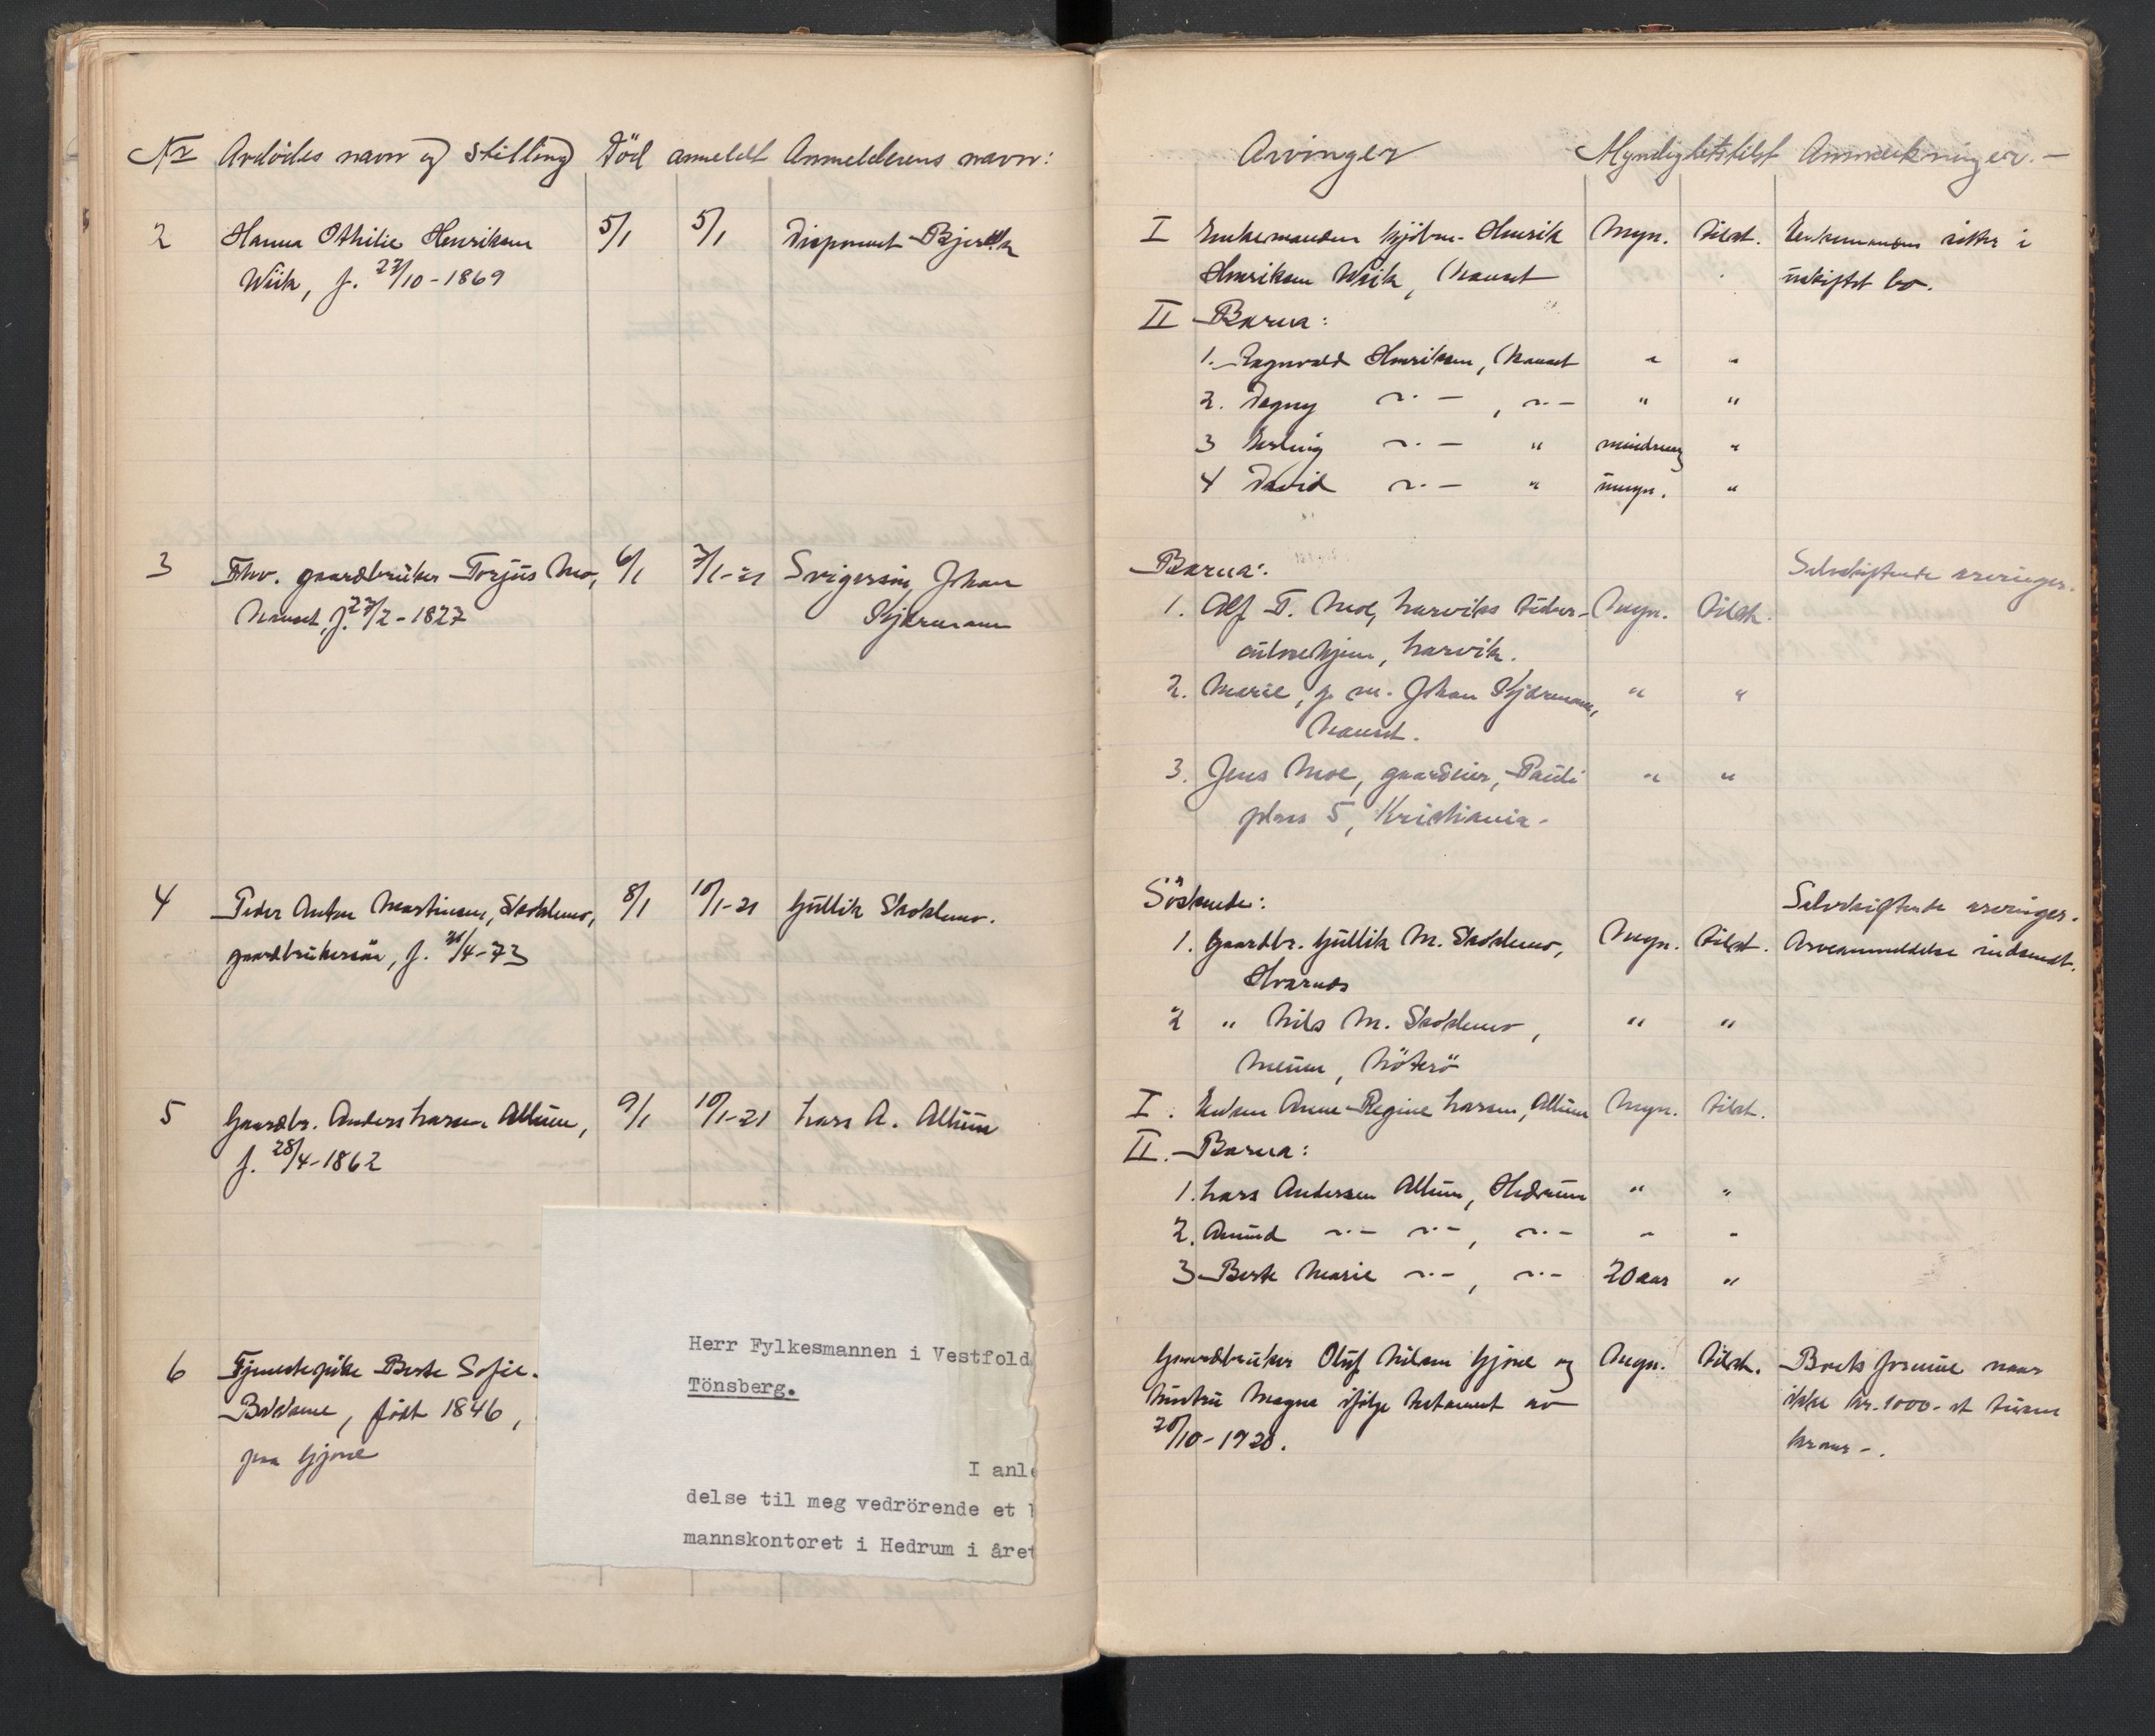 Nr Avdödes navn og Stilling Död anmeldt Anmelderens navn:
2 Hanna Othilie Henriksen 5/1 5/1 Disponent Bjerk
Wiik, f. 27/10-1869
3 Fhv. gaardbruker Torjus Mo, 6/1 7/1-21 Svigersön, Johan
Nanset, f. 27/2-1827 Kjærmann
4 Peder Anton Martinsen, Skoklevo, 8/1 10/1-21 Gullik Skoklevo.
gaardbrukersön, f. /4-73
5 Gaardbr. Anders Larsen Allum, 9/1 10/1-21 Lars A. Allum
f. 28/4-1862
6 Tjenestepike Berte Sofie
født 1846,
paa Gjone
Herr Fylkesmannen i Vestfold
Tönsberg.
I anle
delse til meg vedrörende et
mannskontoret i Hedrum i året
Arvinger Myndighetstilst Anmerkninger.-
I Enkemanden Henrik Myn. tilst. Enkemanden sitter i
Henriksen Wiik, Nanset uskiftet bo.
II Barna:
1. Ragnvald Henriksen, Nanset " "
2. Dagny -"- , -"- " "
3 Erling -"- " mindreaarig "
4 David -"- " umyn. "
Barna: Selvskiftende arvinger.
1. Alf T. Moe, Larviks tuber- Myn. tilst.
kulosehjem, Larvik.
2. Marie, g. m. Johan Kjærmann, " "
Nanset.
3. Jens Moe, gaardeier, Pauli " "
plass 5, Kristiania.
Söskende: Selvskiftende arvinger.
1. Gaardbr. Gullik M. Skoklevo, Myn. tilst. Arveanmeldelse indsendt.
Hvarnes
2 " Nils M. Skoklevo, " "
Nöterö
I. Enken Anne Regine Larsen, Allum Myn. tilst.
II. Barna:
1. Lars Andersen Allum, Hedrum " "
2. Amund -"- -"-, -"- " "
3 Berte Marie -"-, -"- 20 aar "
Gaardbruker Oluf Nilsen Gjone og Myn. tilst. Boets formue naar
hustru Magna ifölge testament av ikke kr. 1000- et tusen
20/10-1920. kroner -.